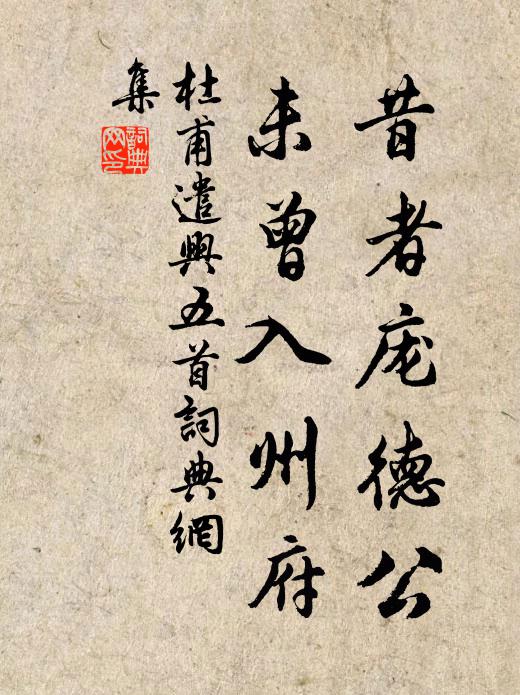 昔者庞德公
未曾入州府
杜甫遣興五首詞典網
集
詞典網印